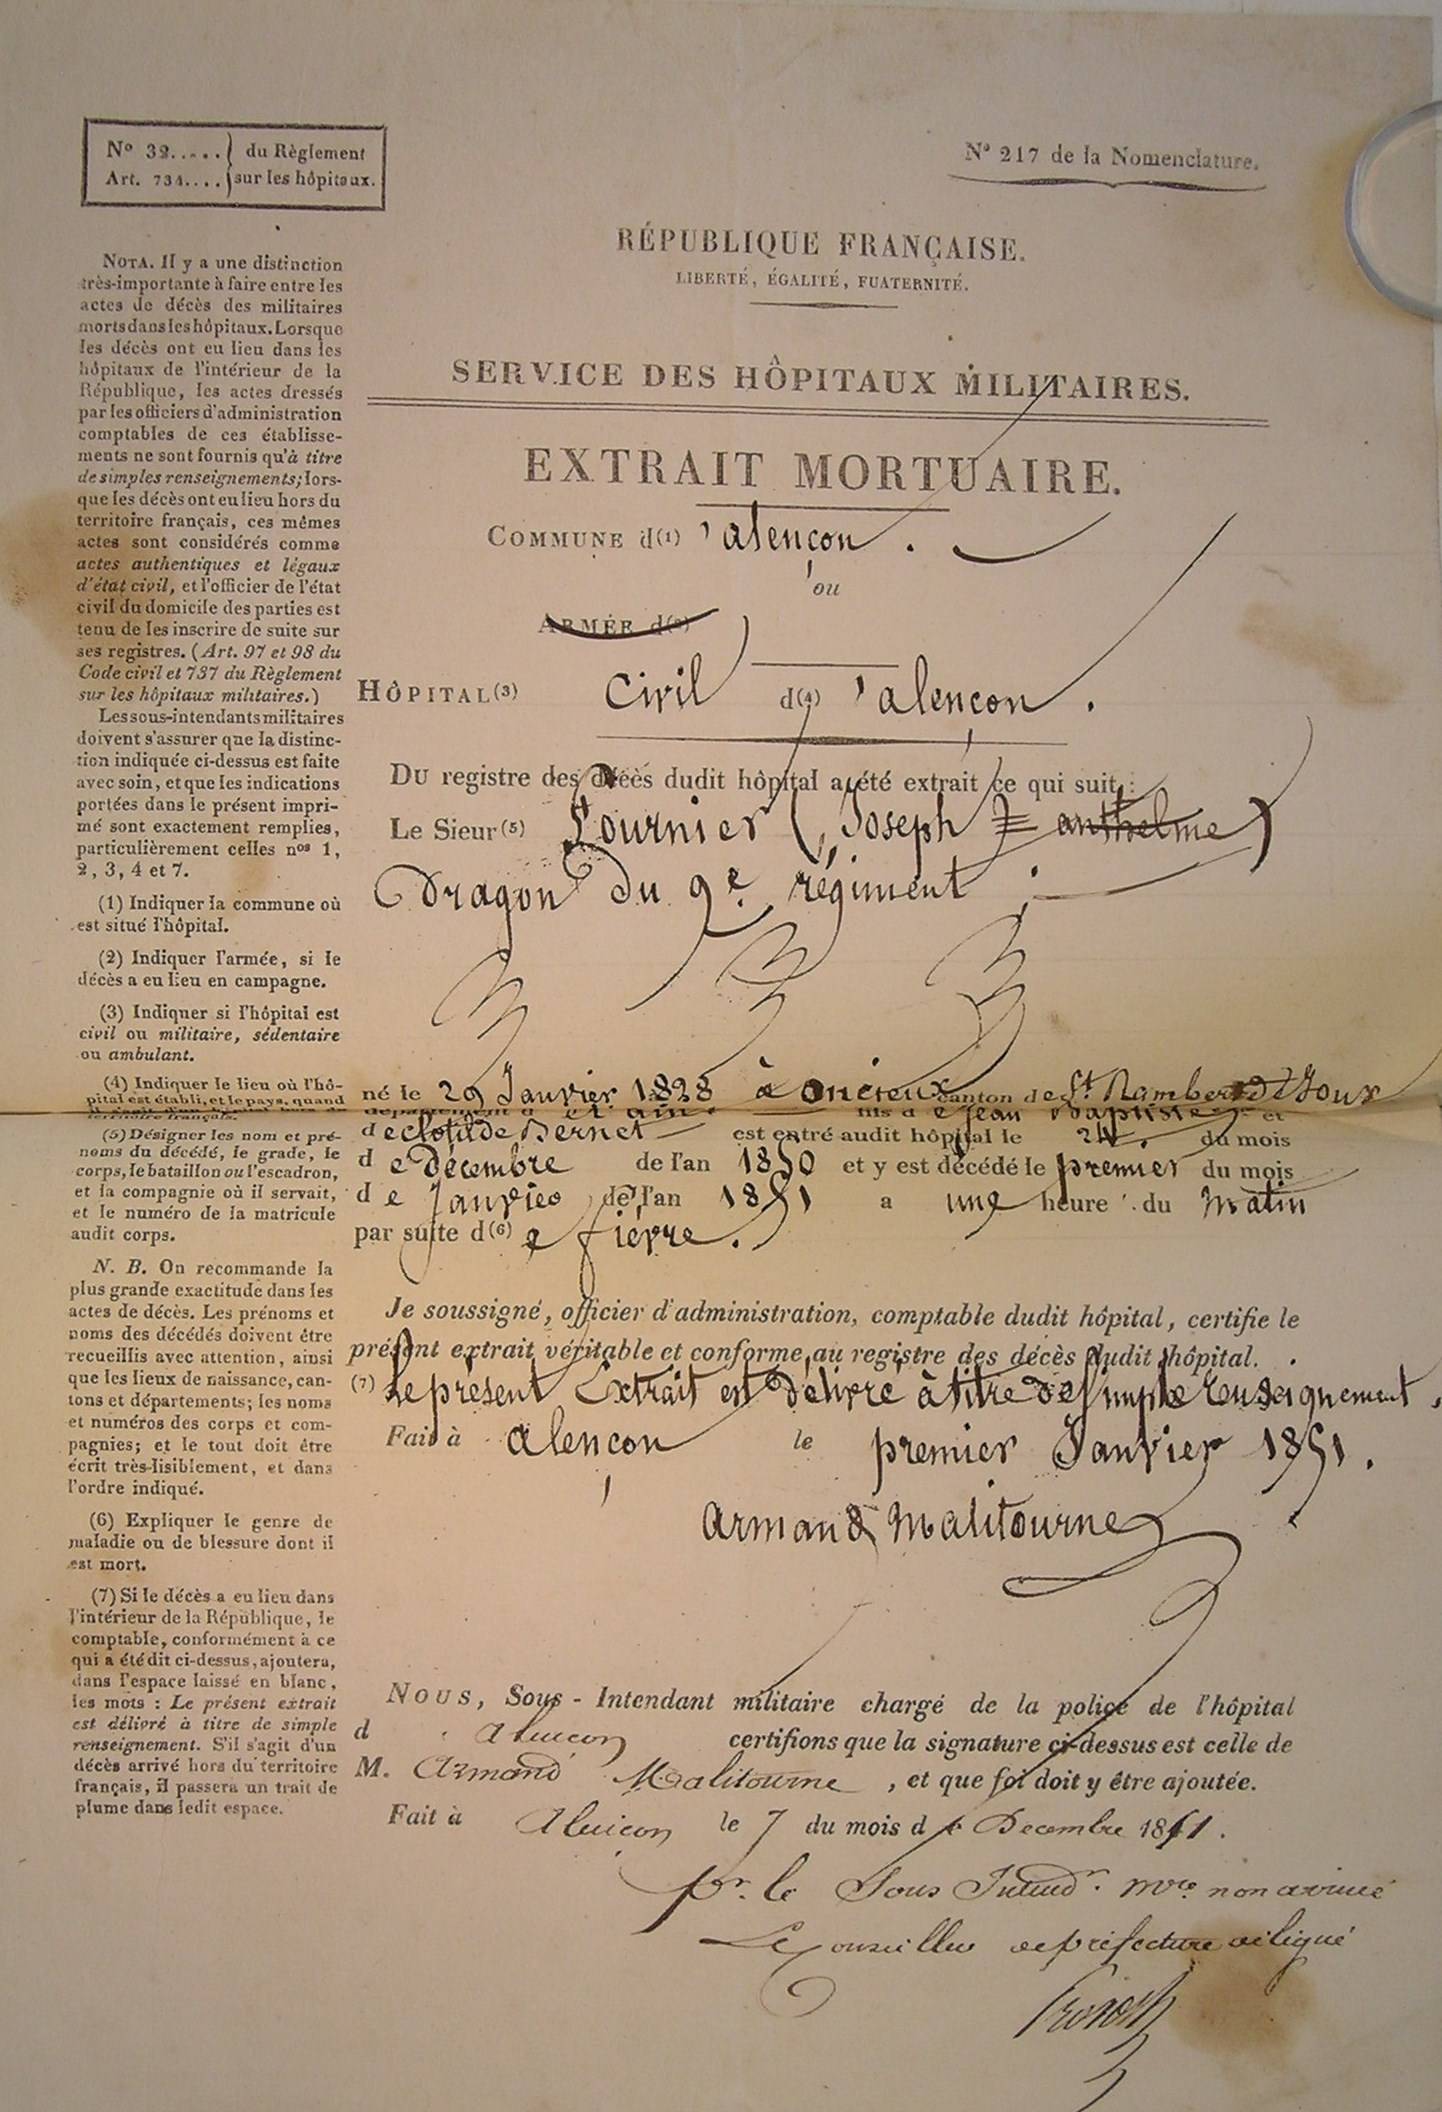 No 32..... du Règlement
Art. 734.... sur les hôpitaux.
No 217 de la Nomenclature.
RÉPUBLIQUE FRANÇAISE.
LIBERTÉ, ÉGALITÉ, FUATERNITÉ.
SERVICE DES HÔPITAUX MILITAIRES.
EXTRAIT MORTUAIRE.
COMMUNE d(1) 'alençon.
ou
ARMÉE d(2)
HÔPITAL(3) Civil d(4) 'alençon.
Du registre des décès dudit hôpital a été extrait ce qui suit :
Le Sieur(5) Fournier (Joseph anthelme)
Dragon du 9e régiment
né le 29 Janvier 1828 à oncieux canton de St Rambert de Joux
département d e l'ain. fils d e Jean Baptiste et
d e clotilde Bernet est entré audit hôpital le 24. du mois
d e Décembre de l'an 1850 et y est décédé le premier du mois
d e Janvier de l'an 1851 a une heure du matin
par suite d(6) e fièvre.
Je soussigné, officier d'administration, comptable dudit hôpital, certifie le
présent extrait véritable et conforme au registre des décès dudit hôpital.
(7) Le présent Extrait est délivré à titre de simple renseignement.
Fait à alençon le premier Janvier 1851.
armand Malitourne
NOUS, Sous-Intendant militaire chargé de la police de l'hôpital
d alençon certifions que la signature ci-dessus est celle de
M. Armand Malitourne, et que foi doit y être ajoutée.
Fait à Alençon le 7 du mois d e Decembre 1851.
pr. le Sous Intendr. mre non
Le Conseiller de préfecture délégué
NOTA. Il y a une distinction
très-importante à faire entre les
actes de décès des militaires
morts dans les hôpitaux. Lorsque
les décès ont eu lieu dans les
hôpitaux de l'intérieur de la
République, les actes dressés
par les officiers d'administration
comptables de ces établisse-
ments ne sont fournis qu'à titre
de simples renseignements; lors-
que les décès ont eu lieu hors du
territoire français, ces mêmes
actes sont considérés comme
actes authentiques et légaux
d'état civil, et l'officier de l'état
civil du domicile des parties est
tenu de les inscrire de suite sur
ses registres. (Art. 97 et 98 du
Code civil et 737 du Règlement
sur les hôpitaux militaires.)
Les sous-intendants militaires
doivent s'assurer que la distinc-
tion indiquée ci-dessus est faite
avec soin, et que les indications
portées dans le présent impri-
mé sont exactement remplies,
particulièrement celles nos 1,
2, 3, 4 et 7.
(1) Indiquer la commune où
est situé l'hôpital.
(2) Indiquer l'armée, si le
décès a eu lieu en campagne.
(3) Indiquer si l'hôpital est
civil ou militaire, sédentaire
ou ambulant.
(4) Indiquer le lieu où l'hô-
pital est établi, et le pays, quand
il s'agit d'un hôpital hors du
territoire français.
(5) Désigner les nom et pré-
noms du décédé, le grade, le
corps, le bataillon ou l'escadron,
et la compagnie où il servait,
et le numéro de la matricule
audit corps.
N. B. On recommande la
plus grande exactitude dans les
actes de décès. Les prénoms et
noms des décédés doivent être
recueillis avec attention, ainsi
que les lieux de naissance, can-
tons et départements; les noms
et numéros des corps et com-
pagnies; et le tout doit être
écrit très-lisiblement, et dans
l'ordre indiqué.
(6) Expliquer le genre de
maladie ou de blessure dont il
est mort.
(7) Si le décès a eu lieu dans
l'intérieur de la République, le
comptable, conformément à ce
qui a été dit ci-dessus, ajoutera,
dans l'espace laissé en blanc,
les mots : Le présent extrait
est délivré à titre de simple
renseignement. S'il s'agit d'un
décès arrivé hors du territoire
français, il passera un trait de
plume dans ledit espace.